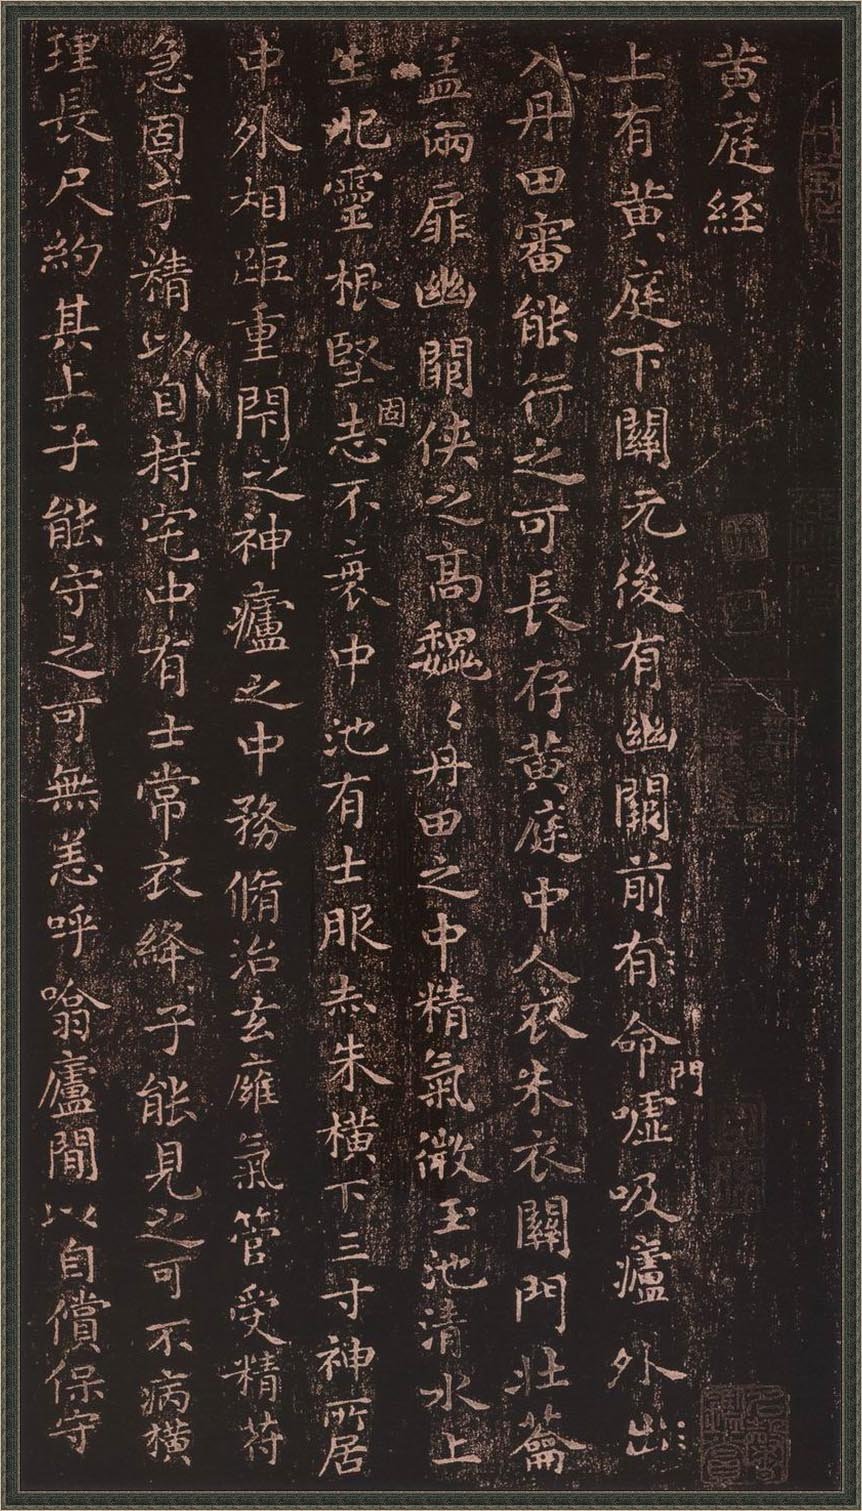 黄庭経
上有黄庭下關元後有幽闕前有命門嘘吸廬外出
入丹田審能行之可長存黄庭中人衣朱衣關門壯蘥
盖兩扉幽闕俠之高魏〻丹田之中精氣微玉池清水上
生肥靈根堅固志不衰中池有士服赤朱橫下三寸神所居
中外相距重閇之神廬之中務脩治玄癰氣管受精符
急固子精以自持宅中有士常衣絳子能見之可不病橫
理長尺約其上子能守之可無恙呼噏廬間以自償保守